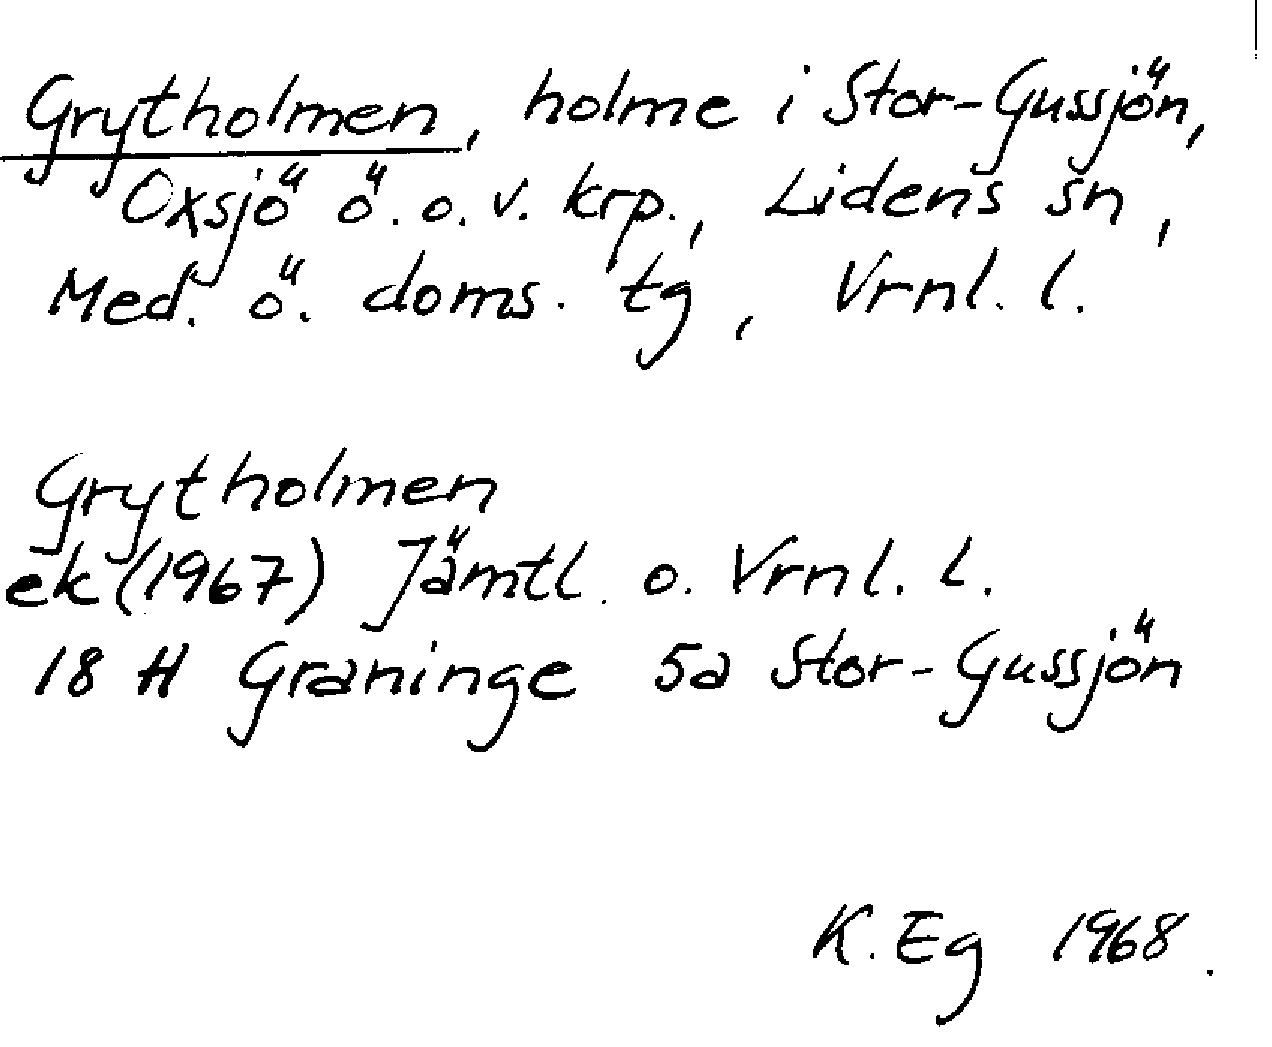 Grytholmen, holme i Stor-Gussjön,
Oxsjö ö. o. v. krp., Lidens sn,
Med. ö. doms. tg, Vrnl. l.
Grytholmen
ek (1967) Jämtl. o. Vrnl. l.
18 H Graninge 5a Stor-Gussjön
K. Eg 1968.